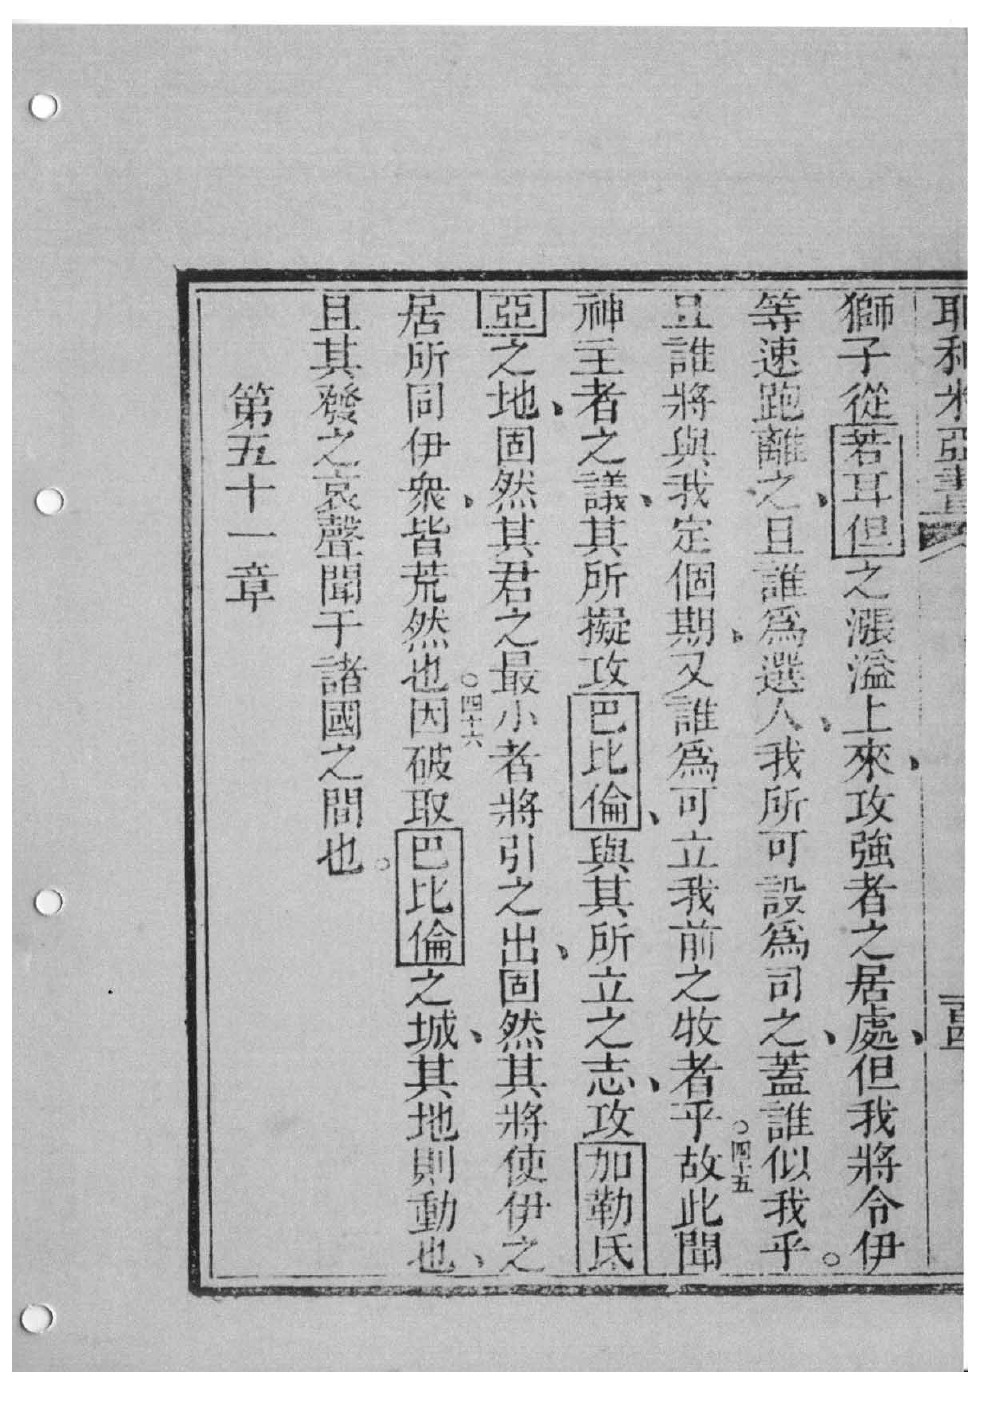 耶利米亞書
獅子從若耳但之漲溢上來、攻強者之居處、但我將令伊
等速跑離之、且誰爲選人、我所可設爲司之、蓋誰似我乎。
且誰將與我定個期、又誰爲可立我前之牧者乎○四十五故此聞
神主者之議、其所擬攻巴比倫、與其所立之志、攻加勒氐
亞之地、固然其君之最小者將引之出、固然其將使伊之
居所同伊衆、皆荒然也○四十六因破取巴比倫之城、其地則動也、
且其發之哀聲聞于諸國之間也。
第五十一章